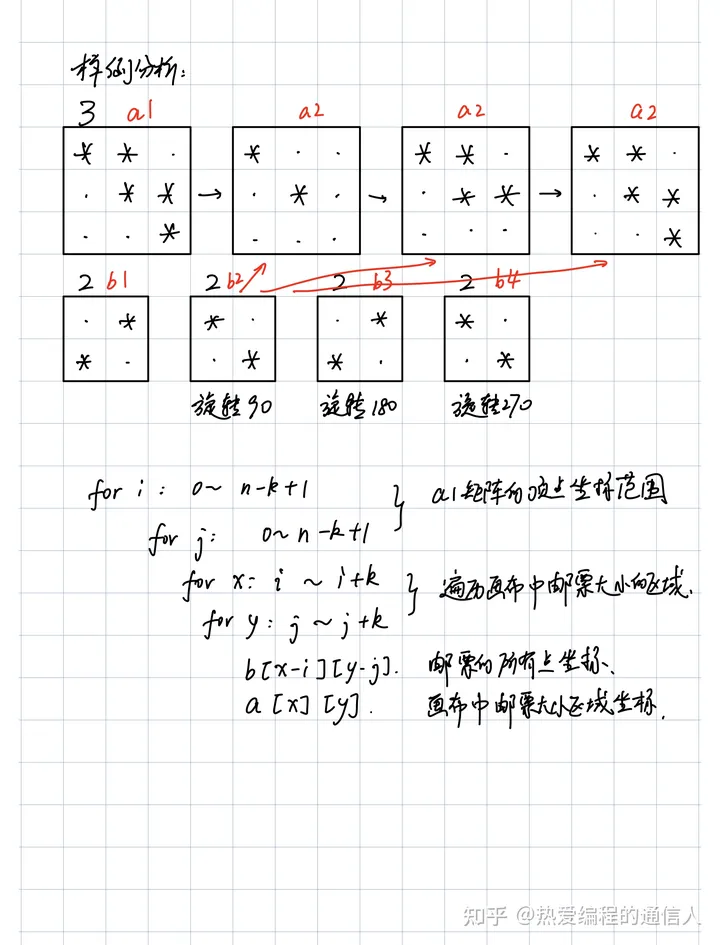 样例分析:
3 a1 a2 a2 a2
* * . * . . * * . * * .
. * * → . * . → . * * → . * *
. . * . . . . . . . . *
2 b1 2 b2 2 b3 2 b4
. * * . . * * .
* . . * * . . *
旋转90 旋转180 旋转270
for i : 0~ n-k+1 } a1矩阵的顶点坐标范围
for j: 0~n-k+1
for x: i ~ i+k } 遍历画布中邮票大小的区域.
for y: j ~ j+k
b[x-i][y-j]. 邮票的所有点坐标、
a[x][y]. 画布中邮票大小区域坐标.
知乎 @热爱编程的通信人